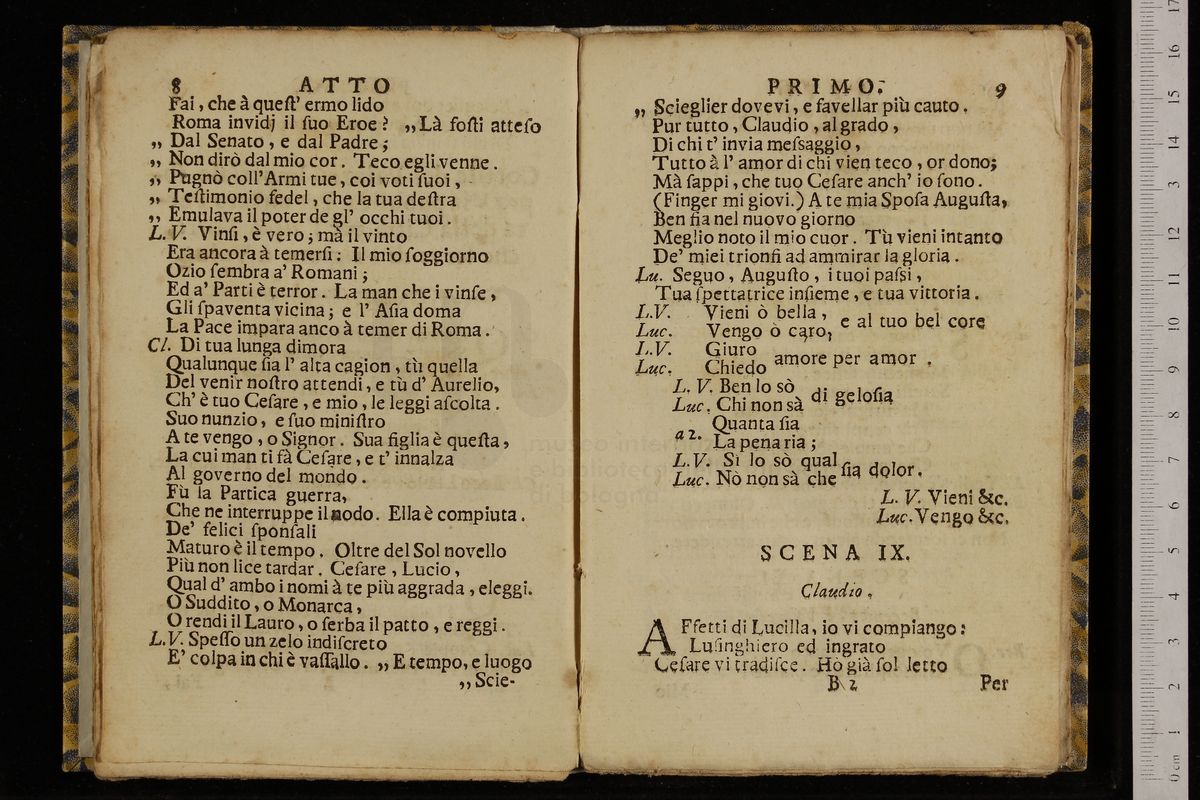 8 ATTO
Fai, che à queſt' ermo lido
Roma invidj il ſuo Eroe? „Là foſti atteſo
„ Dal Senato, e dal Padre;
„ Non dirò dal mio cor. Teco egli venne.
„ Pugnò coll'Armi tue, coi voti ſuoi,
„ Teſtimonio fedel, che la tua deſtra
„ Emulava il poter de gl' occhi tuoi.
L. V. Vinſi, è vero; mà il vinto
Era ancora à temerſi: Il mio ſoggiorno
Ozio ſembra a' Romani;
Ed a' Parti è terror. La man che i vinſe,
Gli ſpaventa vicina; e l' Aſia doma
La Pace impara anco à temer di Roma.
Cl. Di tua lunga dimora
Qualunque ſia l' alta cagion, tù quella
Del venir noſtro attendi, e tù d' Aurelio,
Ch' è tuo Ceſare, e mio, le leggi aſcolta.
Suo nunzio, e ſuo miniſtro
A te vengo, o Signor. Sua figlia è queſta,
La cui man ti fà Ceſare, e t' innalza
Al governo del mondo.
Fù la Partica guerra,
Che ne interruppe il nodo. Ella è compiuta.
De' felici ſponſali
Maturo è il tempo. Oltre del Sol novello
Più non lice tardar. Ceſare, Lucio,
Qual d' ambo i nomi à te più aggrada, eleggi.
O Suddito, o Monarca,
O rendi il Lauro, o ſerba il patto, e reggi.
L.V. Speſſo un zelo indiſcreto
E' colpa in chi è vaſſallo. „ E tempo, e luogo
„ Scie-
PRIMO. 9
„ Scieglier dovevi, e favellar più cauto.
Pur tutto, Claudio, al grado,
Di chi t' invia meſsaggio,
Tutto à l' amor di chi vien teco, or dono;
Mà ſappi, che tuo Ceſare anch' io ſono.
(Finger mi giovi.) A te mia Spoſa Auguſta,
Ben fia nel nuovo giorno
Meglio noto il mio cuor. Tù vieni intanto
De' miei trionfi ad ammirar la gloria.
Lu. Seguo, Auguſto, i tuoi paſsi,
Tua ſpettatrice inſieme, e tua vittoria.
L.V. Vieni ò bella,
Luc. Vengo ò caro, e al tuo bel core
L.V. Giuro
Luc. Chiedo amore per amor.
L. V. Ben lo sò
Luc. Chi non sà di geloſia
Quanta ſia
a 2. La pena ria;
L.V. Sì lo sò qual
Luc. Nò non sà che ſia dolor.
L. V. Vieni &c.
Luc. Vengo &c.
SCENA IX.
Claudio.
AFfetti di Lucilla, io vi compiango:
Luſinghiero ed ingrato
Ceſare vi tradiſce. Hò già ſol letto
B 2 Per
museo inter
e bibliotec
di bologna